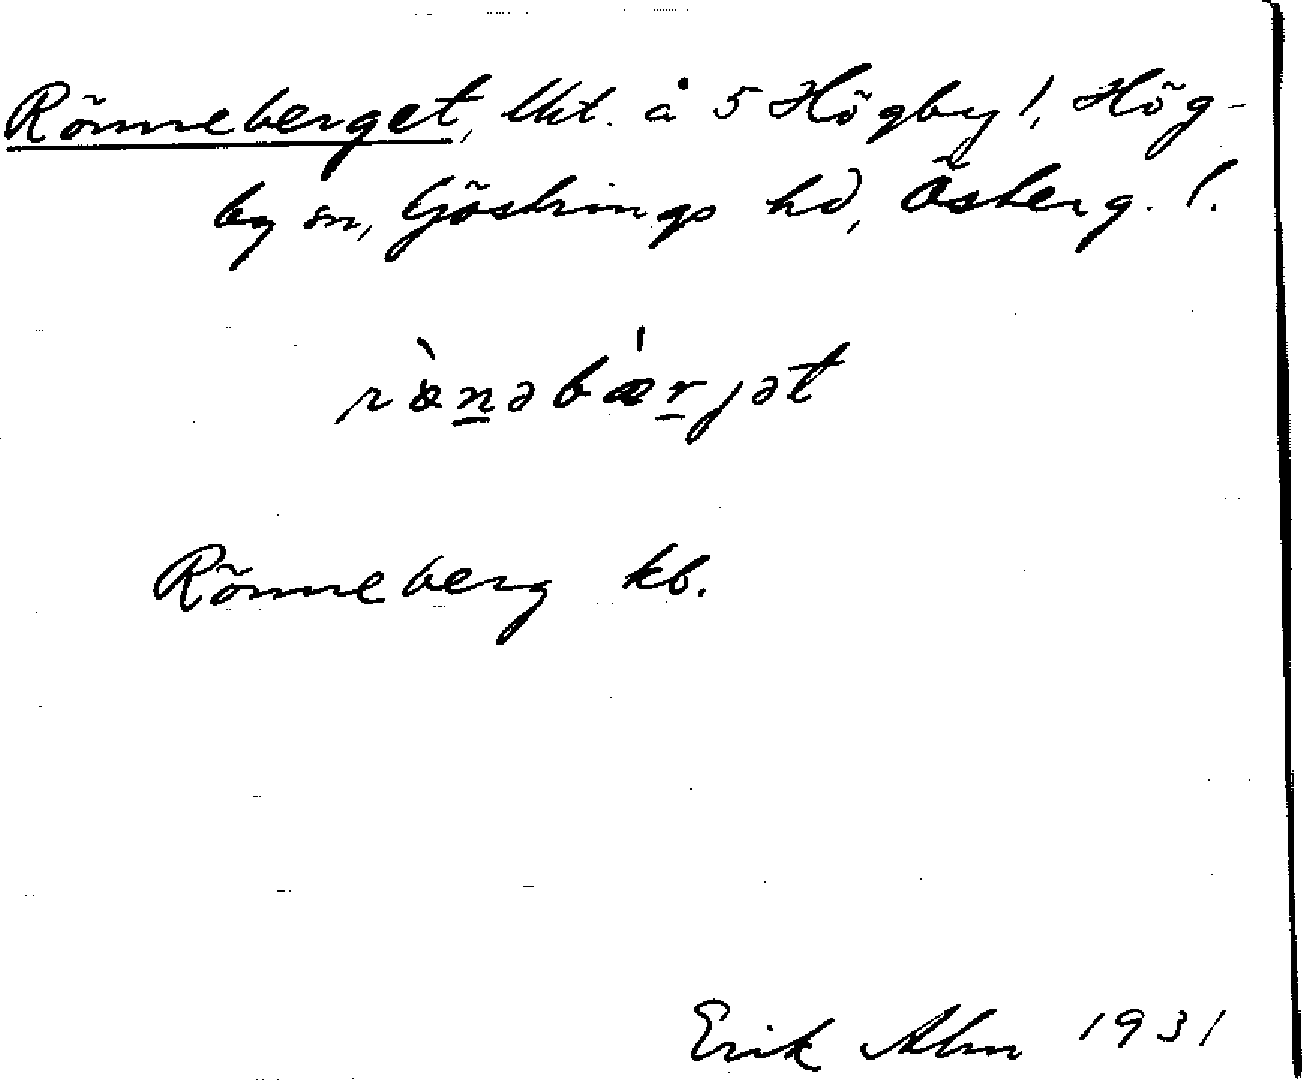 Rönneberget, lht. å 5 Högby!, Hög-
by sn, Göstrings hd, Österg.!.
rö̀nəbǽrjət
Rönneberg kb.
Erik Alm 1931